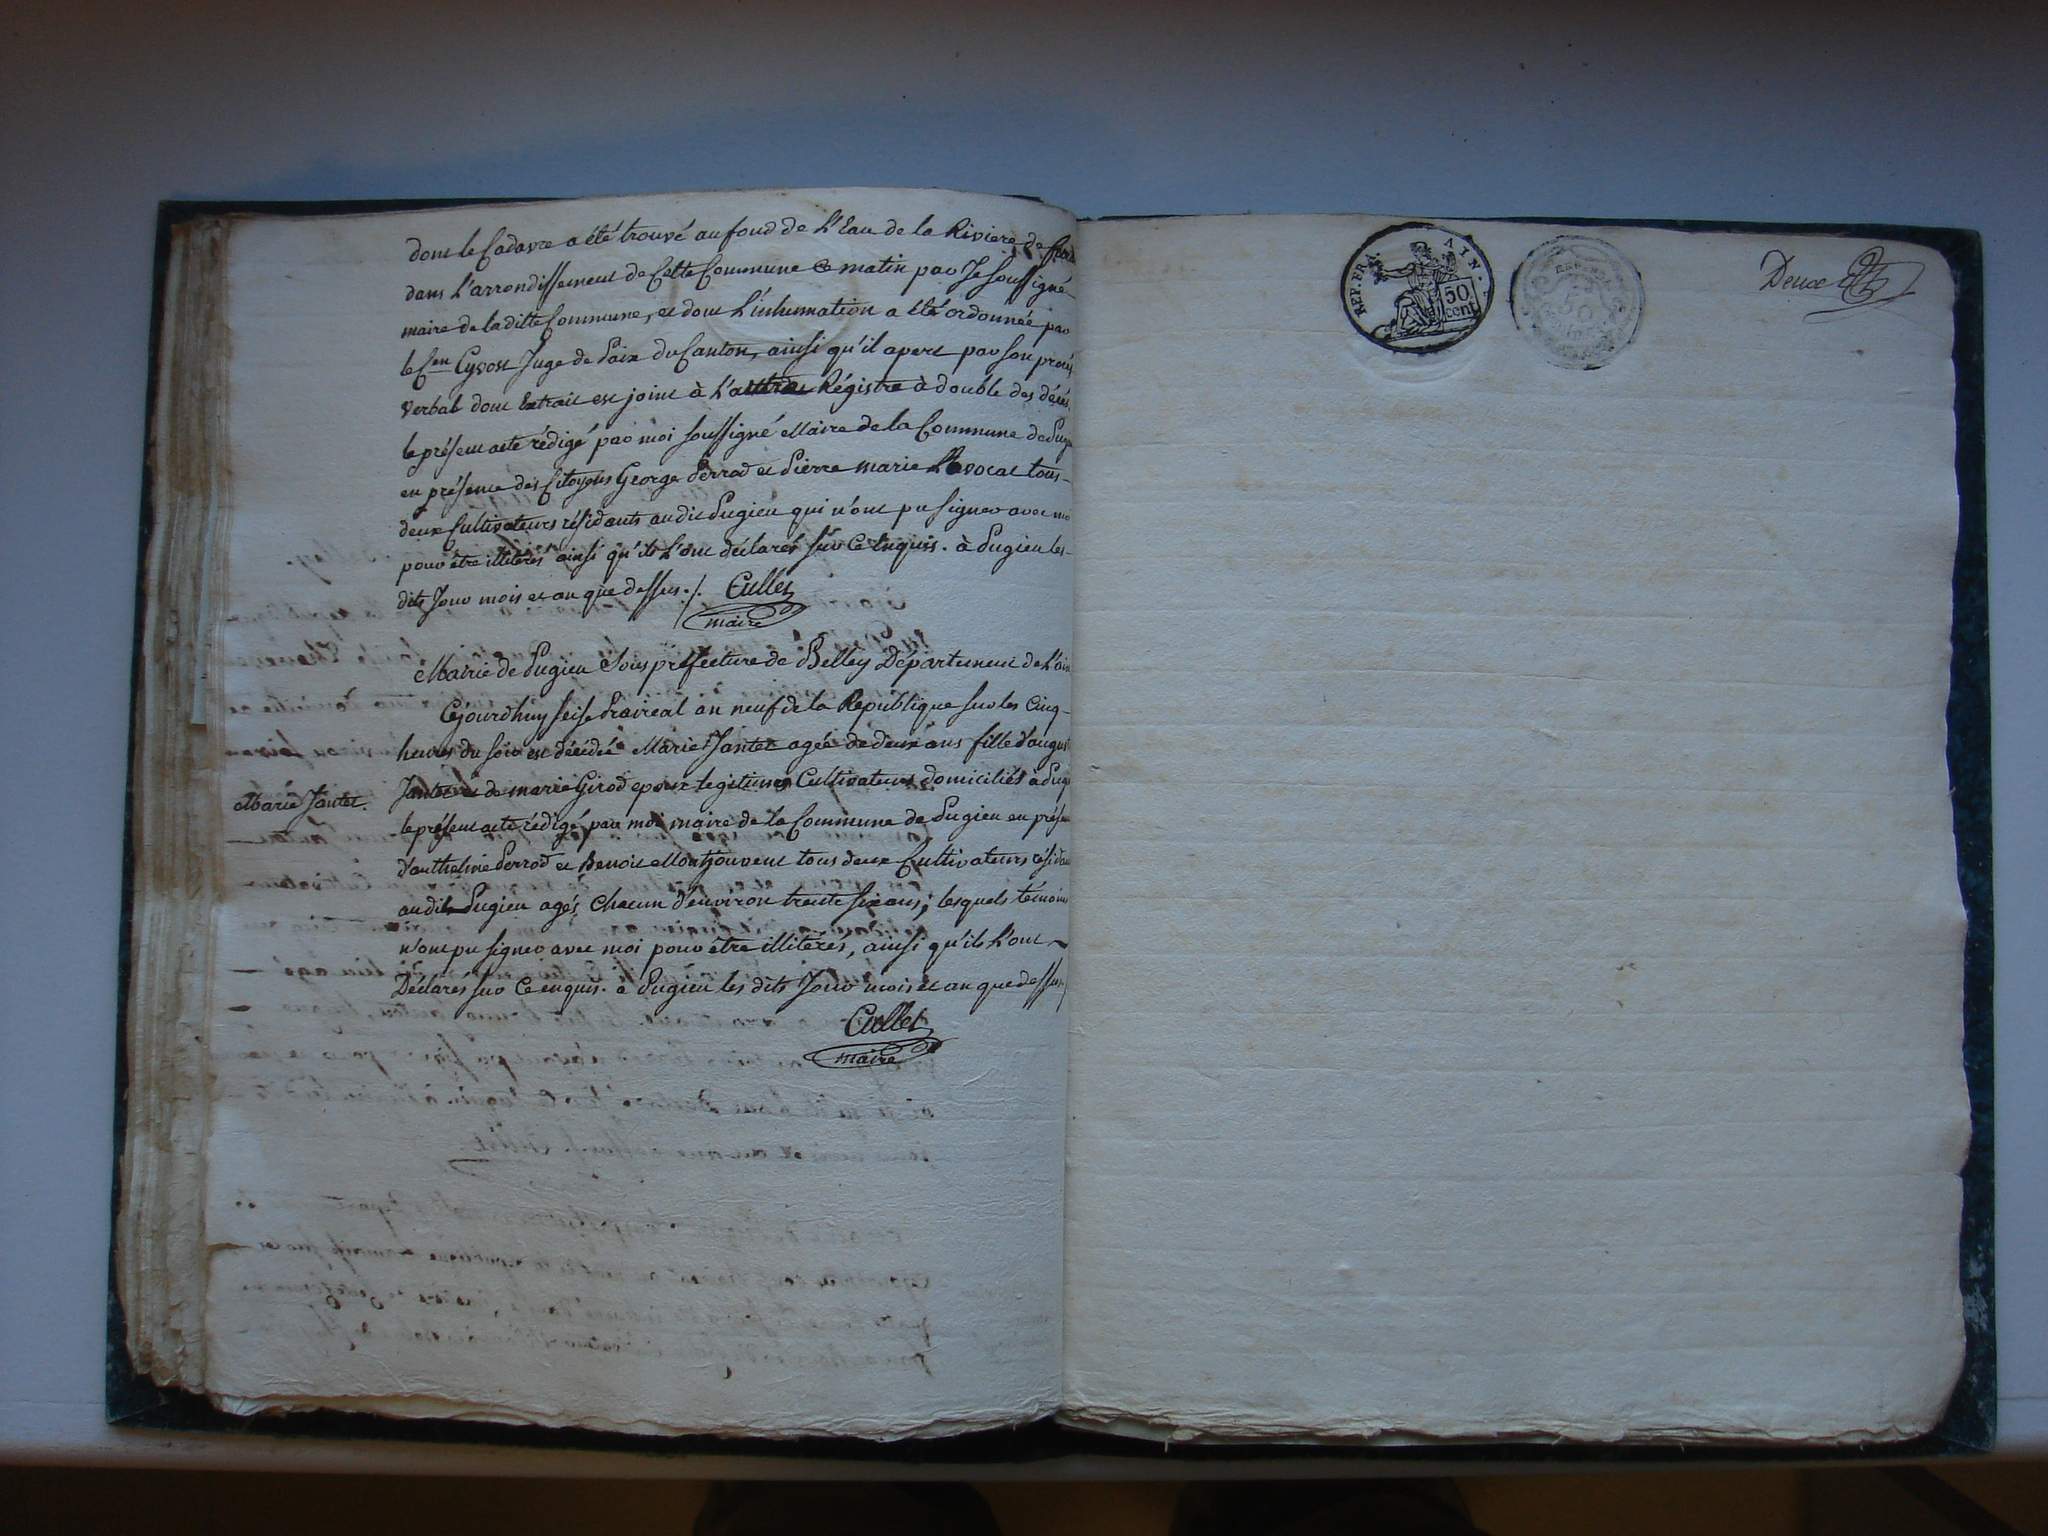 dont le Cadavre a été trouvé au fond de L'Eau de la Riviere de
dans L'arrondissement de Cette Commune Ce matin par Je soussigné
maire de la ditte Commune, et dont L'inhumation a été ordonnée par
le Cen Cyvoct Juge de Paix du Canton, ainsi qu'il apert par son procés
verbal dont Extrait est joint à L'autre Régistre à double des décés.
le présent acte rédigé par moi soussigné Maire de la Commune de Pugieu
en présence des Citoyens George Perrod et Pierre marie L'avocat tous
deux Cultivateurs résidants audit Pugieu qui n'ont pu signer avec moi
pour être illitérés ainsi qu'ils L'ont déclarés sur Ce Enquis. à Pugieu les
dits Jour mois et an que dessus ./. Cullet
maire
Mairie de Pugieu Sous préfecture de Belley Département de L'ain
Cejourdhuy seise Prairéal an neuf de la Republique sur les Cinq
heures du soir est décédée Marie Jantet agée de deux ans fille d'august
Marie Jantet.
Jantet et de marie Girod epoux legitimes Cultivateurs domiciliés à Pugieu
le présent acte rédigé par moi maire de la Commune de Pugieu en présen
d'anthelme Perrod et Benoit Montjouvent tous deux Cultivateurs résidan
audit Pugieu agés Chacun d'environ trente six ans; lesquels témoins
n'ont pu signer avec moi pour être illitérés, ainsi qu'ils L'ont
Déclarés sur Ce enquis. à Pugieu les dits Jour mois et an que dessus ./
Cullet
maire
REP. FRA. AIN.
50 cent.
50
Deuce